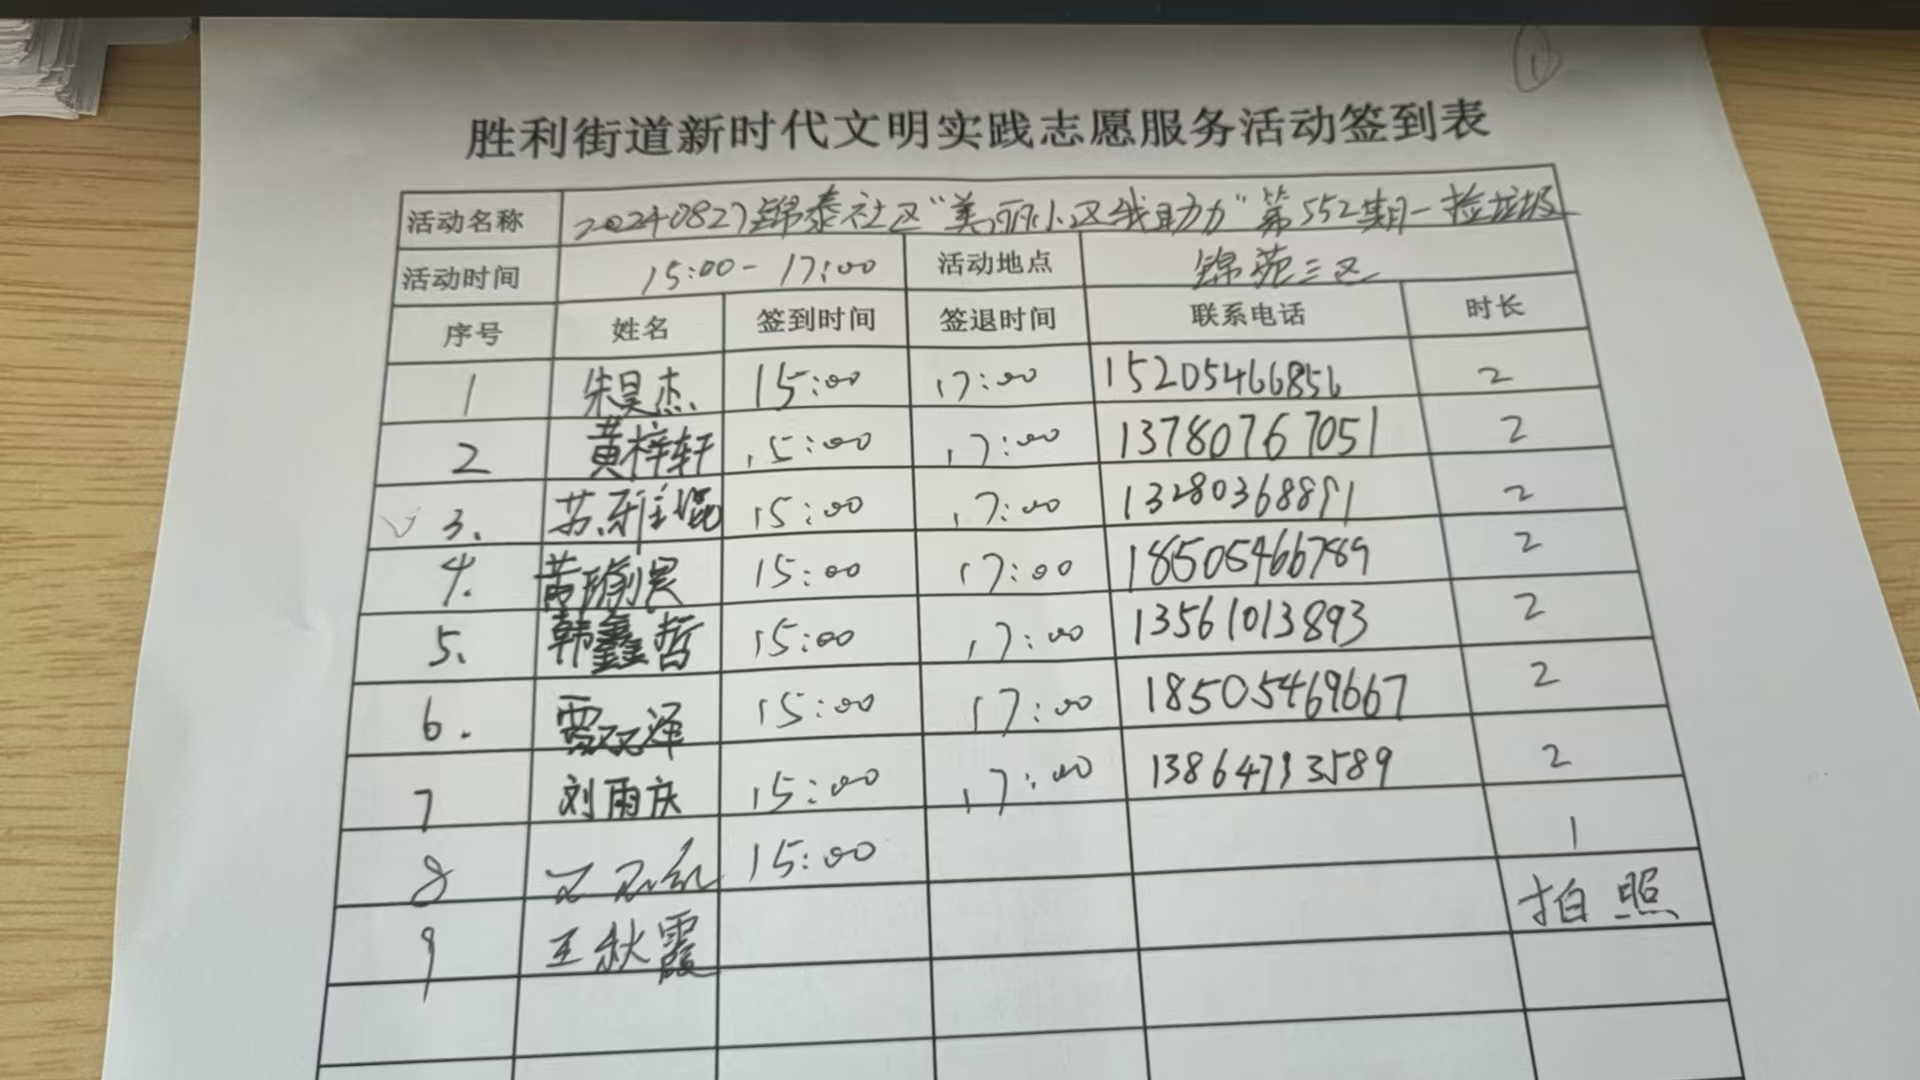 ①
胜利街道新时代文明实践志愿服务活动签到表
活动名称 20240827锦泰社区"美丽小区我助力"第552期-捡垃圾
活动时间 15:00-17:00 活动地点 锦苑三区
序号 姓名 签到时间 签退时间 联系电话 时长
1 朱昊杰 15:00 17:00 15205466856 2
2 黄梓轩 15:00 17:00 13780767051 2
✓ 3. 苏 15:00 17:00 13280368891 2
4. 黄瑜 15:00 17:00 18505466789 2
5. 韩鑫哲 15:00 17:00 13561013893 2
6. 贾 泽 15:00 17:00 18505469667 2
7 刘雨庆 15:00 17:00 13864713589 2
8 15:00 1
9 王秋霞 拍照